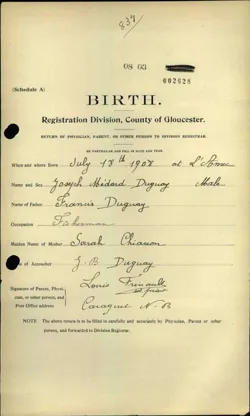 837
08 03
002628
(Schedule A)
BIRTH.
Registration Division, County of Gloucester.
RETURN OF PHYSICIAN, PARENT, OR OTHER PERSON TO DIVISION REGISTRAR.
BE PARTICULAR AND FILL IN DATE AND YEAR.
When and where Born July 18th 1908 at L'Anse
Name and Sex Joseph Médard Duguay Male
Name of Father Francis Duguay
Occupation Fisherman
Maiden Name of Mother Sarah Chiasson
of Accoucher J. B. Duguay
Signature of Parent, Physician, or other person, and Post Office address
Louis
Caraquet N. B
NOTE The above return is to be filled in carefully and accurately by Physician, Parent or other person, and forwarded to Division Registrar.